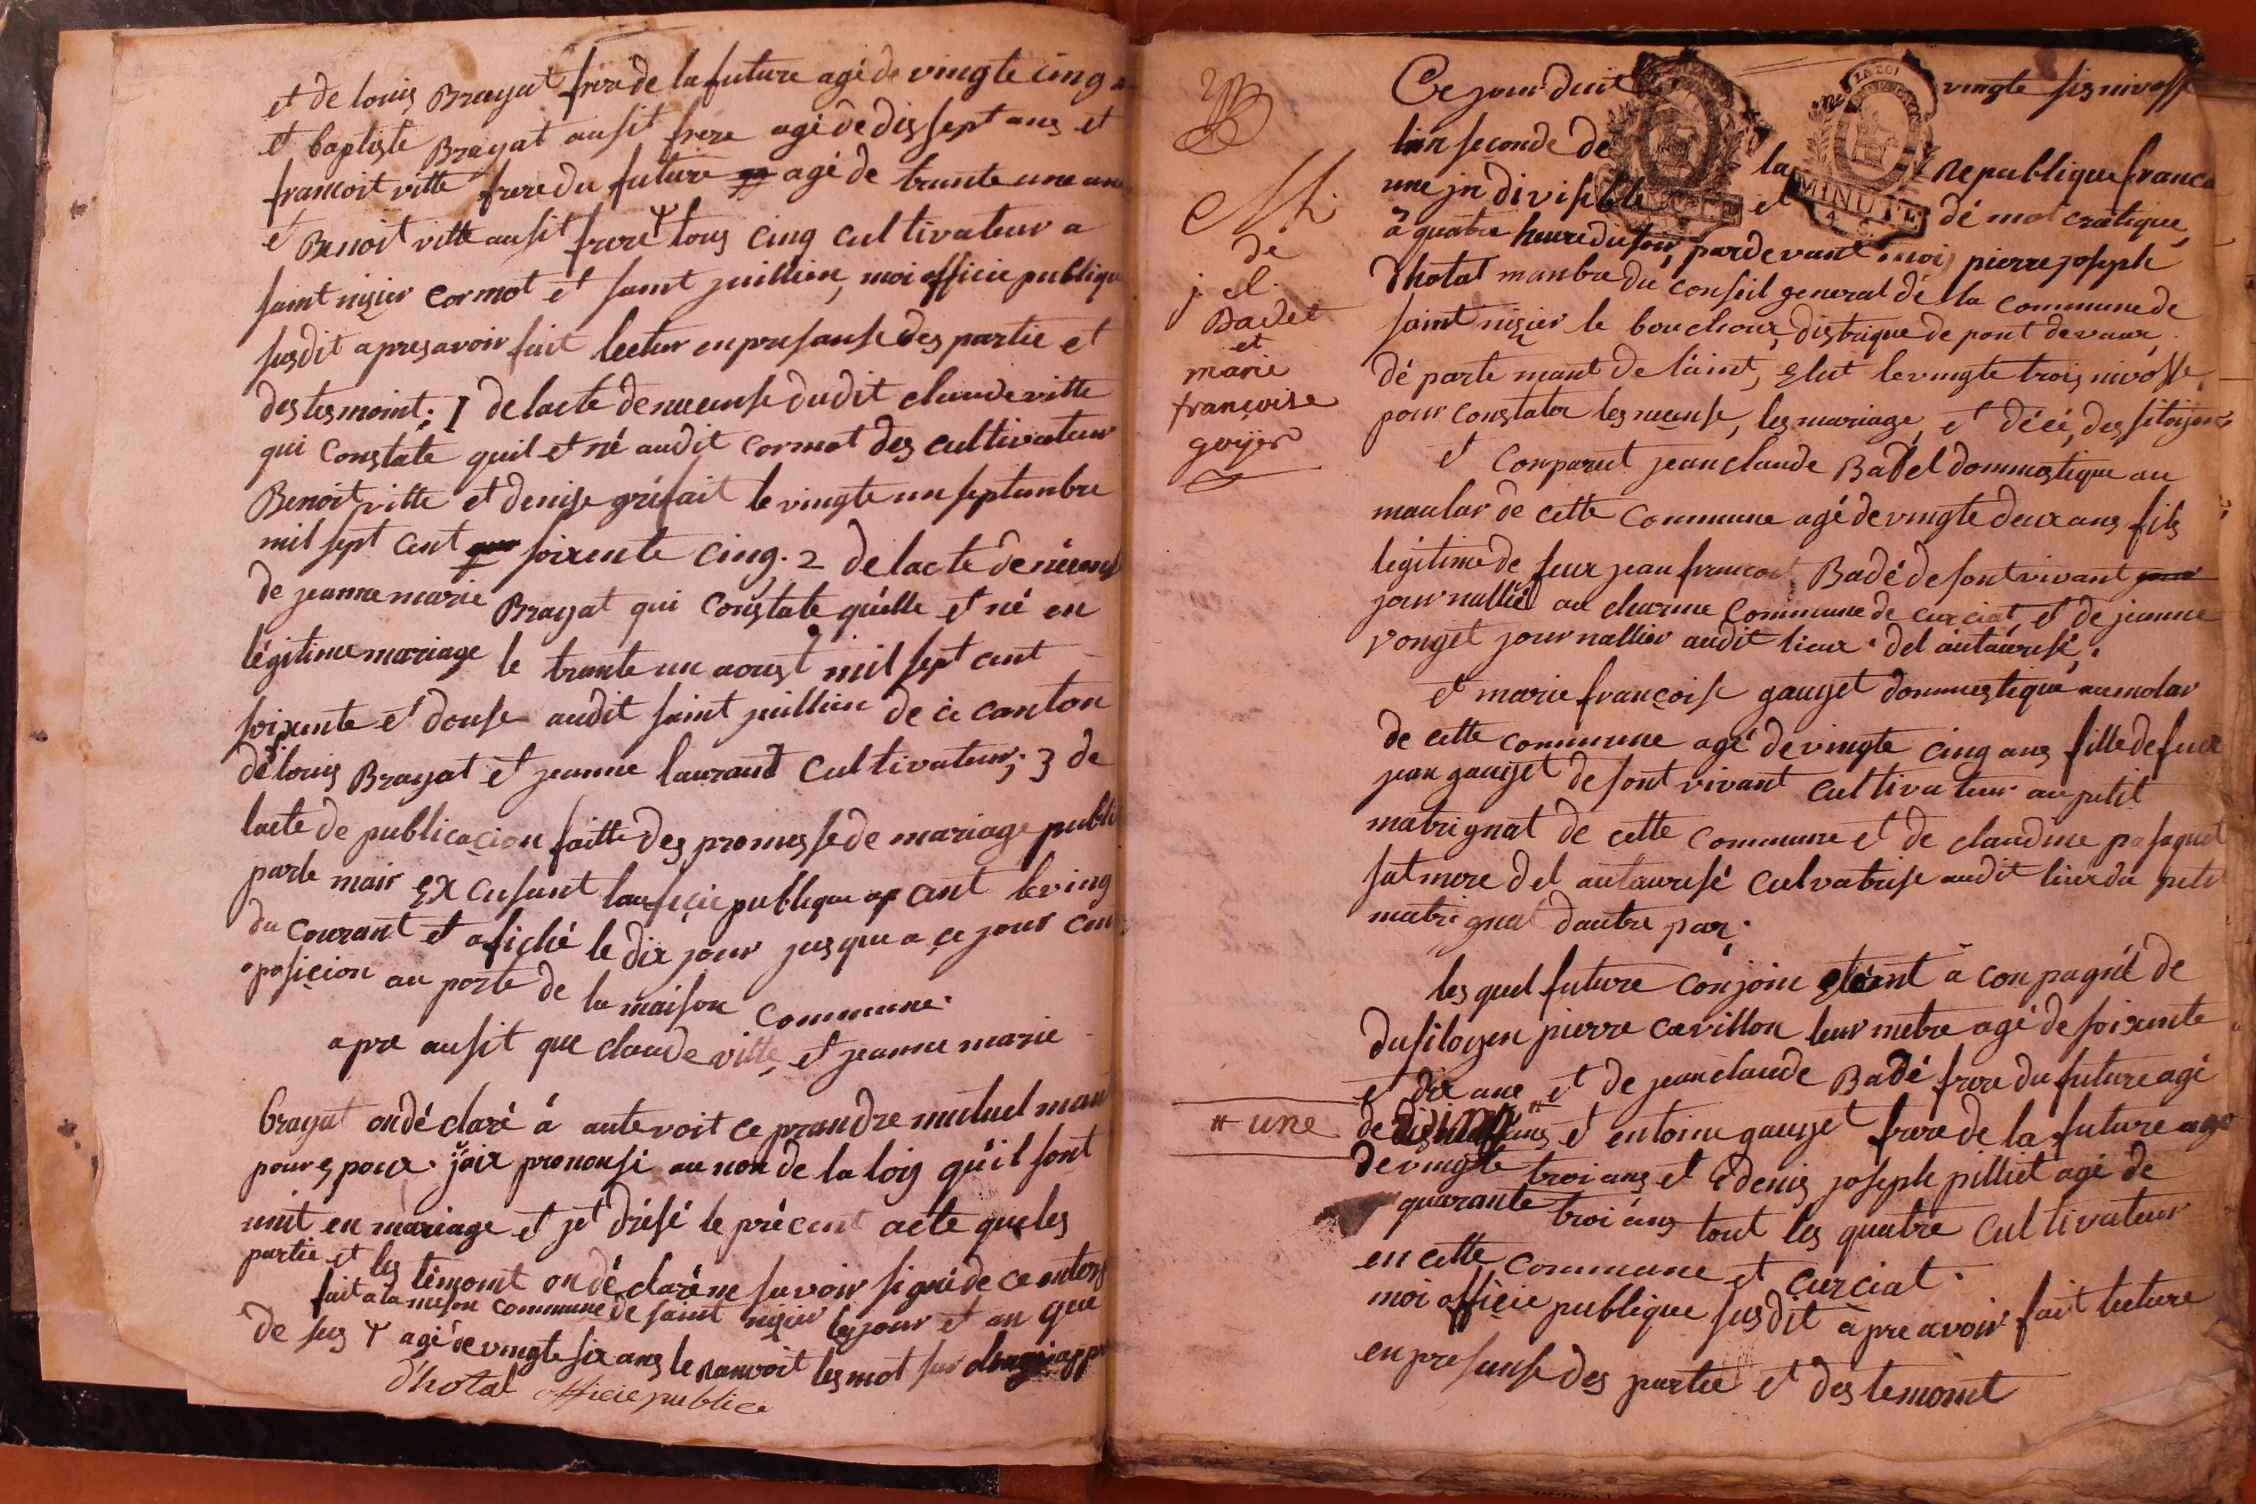 et de louis Brayat frere de la future agé de vingte cinq
et baptiste Brayat ausit frere agé de dis sept ans et
francoit vitte frere du future agé de trante une ans
et Benoit vitte ausit frere tous cinq cultivateur a
saint nizier cormot et saint juillien, moi officie publique
susdit apres avoir fait lectur en presanse des partie et
des tesmoint; 1 de lacte de neeunse dudit claude vitte
qui constate quil et né audit cormot des cultivateur
Benoit vitte et denise gréfait le vingte un septanbre
mil sept cent soixente cinq. 2 de lacte de
de jeanne marie Brayat qui constate quélle et né en
légitime mariage le trante un aoust mil sept cent
soixente et douse audit saint juillien de ce canton
dé louis Brayat et jeanne laurant cultivateur; 3 de
lacte de publicaçion faitte des promesse de mariage publi
parle mair Excusant publique cent le ving
du courant et afiché le dix jour jusque a çe jour
oposiçion au porte de la maison commune.
apre ausit que claude vitte et jeanne marie
brayat on déclaré á aute voit ce prandre mutuel man
pour epoux. jaix prononsi au non de la loiy qu'il sont
unit en mariage et jet drésé le précent acte que les
partie et les témoint on déclaré ne savoir signé de ce
fait a la meson commune de saint nizier les jour et an que
de sus agé de vingte six ans le ranvoit les mot sur
d'hotal officie publice
Ce jour duit vingte sis nivosse
lan seconde de la Republique franca
une jndivisible et démot cratique,
à quatre heure du soir, par devant moi pierre joseph
Dhotal manbre du conseil general dé la commune de
saint nizier le bouchoux, distrique de pont devaux
département de laint, Elut le vingte trois nivosse,
pour constater les neeunse, les mariage, et décé, des sitoijen
et conparut jean claude Badel dommestique au
maular de cette commune agé de vingte deux ans fils
légitime de feux jean francoit Badé de sont vivant
journallié au charme commune de curciat, et de jeanne
vonget journallier audit lieux. del autaurisé,.
et marie françoise gauyet dommestique au molar
de cette commune agé de vingte cinq ans fille de feux
jean gauyet de sont vivant cultivateur au petit
matrignat de cette commune et de claudine pasaquet
sat mere del autaurisé culvatrise audit lieu du petit
matrignat dautre par.
les quel future conjoin etéant a conpagné de
du sitoyen pierre cavillon leur metre agé de soixente
et dix ans et de jean claude Badé frere du future agé
de ans et entoine gauyet frere de la future age
de vingte troi ans et denis joseph pilliet agé de
quarante troi ans tout les quatre cultivateur
en cette commune et çurciat.
moi offiçie publique susdit à pre avoir fait lecture
en presanse des partie et des temoint
M.
de
j. cl.
Badet
et
marie
françoise
goÿer
# une
MINUTE